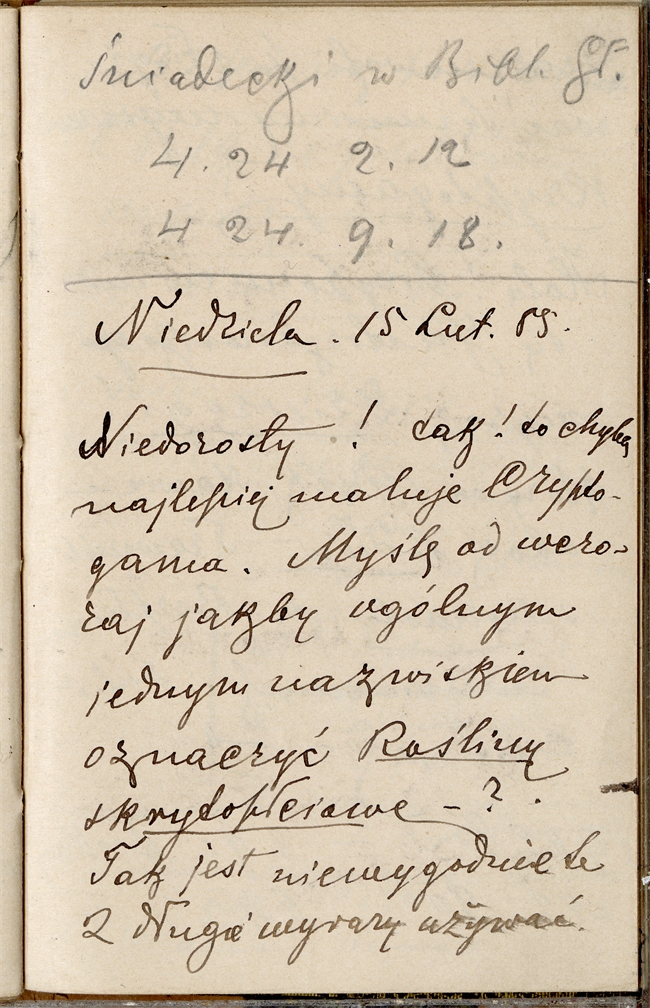 Śniadecki w Bibl. gł.
4. 24 2. 12
4 24. 9. 18.
Niedziela. 15 Lut. 85.
Niedorosty! tak! to chyba
najlepiej maluje Crypto-
gama. Myślę od wczo-
raj jakby ogólnym
jednym nazwiskiem
oznaczyć Rośliny
skrytopłciowe - ? .
Tak jest niewygodnie te
2 długie wyrazy używać.